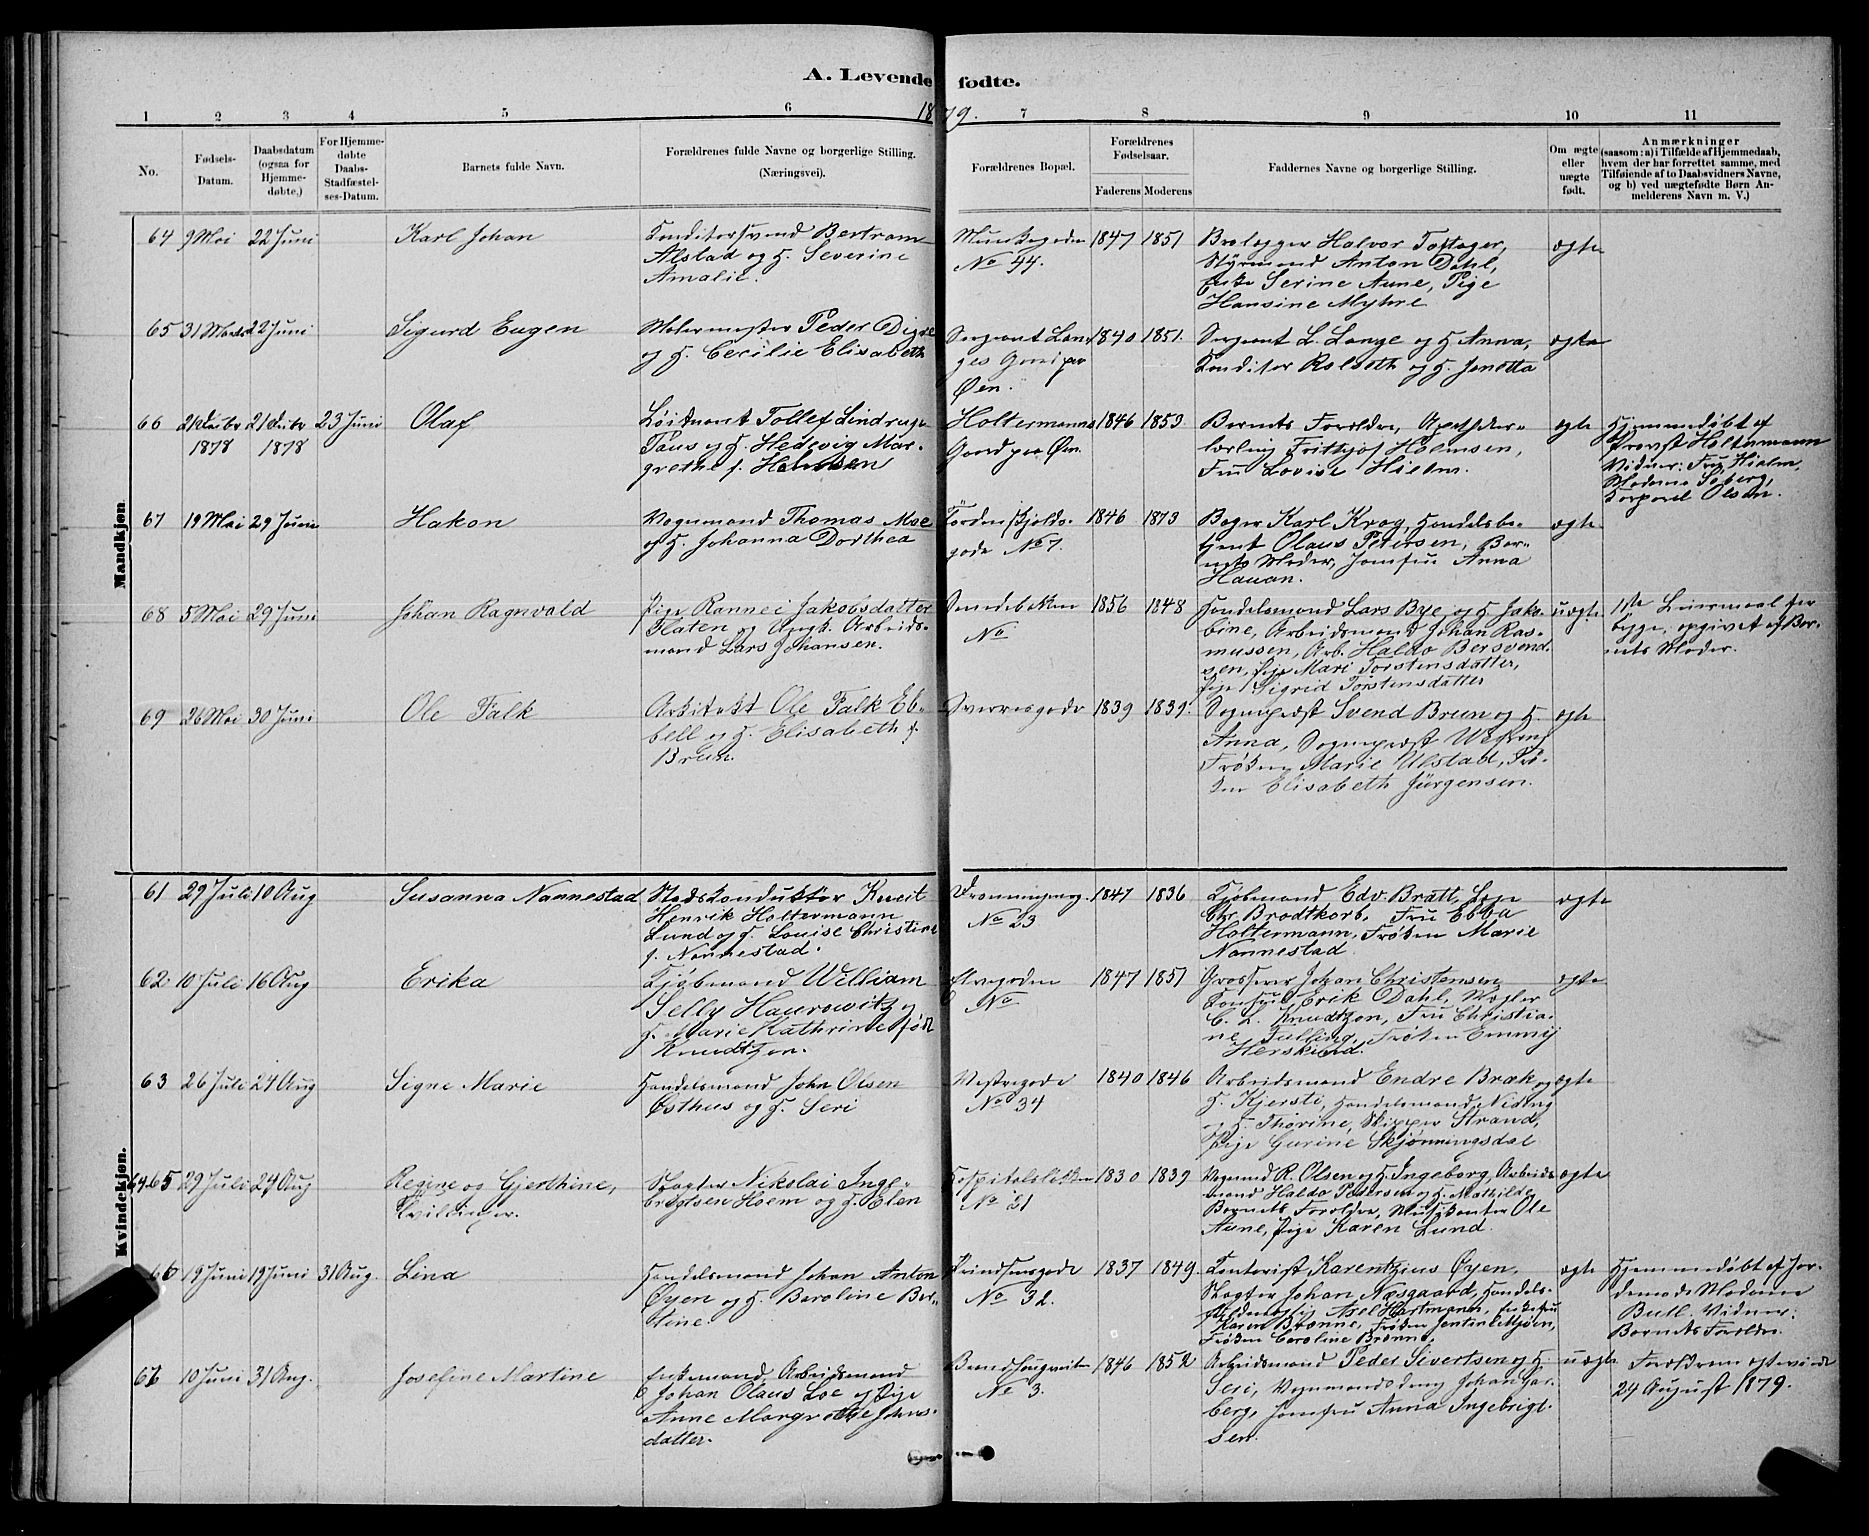 A. Levende fødte.
1879.
1 2 3 4 5 6 7 8 9 10 11
No.
Fødsels-
Datum.
Daabsdatum
(ogsaa for
Hjemme-
døbte.)
For Hjemme-
døbte
Daabs-
Stadfæstel-
ses-Datum.
Barnets fulde Navn.
Forældrenes fulde Navne og borgerlige Stilling.
(Næringsvei).
Forældrenes Bopæl.
Forældrenes
Fødselsaar.
Faderens Moderens
Faddernes Navne og borgerlige Stilling.
Om ægte
eller
uægte
født.
Anmærkninger
(saasom: a) i Tilfælde af Hjemmedaab,
hvem der har forrettet samme, med
Tilføiende af to Daabsvidners Navne,
og b) ved uægtefødte Børn An-
melderens Navn m. V.)
Mandkjøn
64 9 Mai 22 Juni
Karl Johan
Konditorsvend Bertram
Alstad og H. Severine
Amalie.
Munkegaden
No 44.
1847 1851
Brolægger Halvor
Styrmand Anton Dahl,
Enke Serine Aune, Pige
Hansine Myhre
ægte
65 31 Marts 22 Juni
Sigurd Eugen
Malermester Peder Digre
og H. Cecilie Elisabeth
Sergeant Lan-
ges Gaard paa
Øen.
1840 1851.
Sergeant L. Lange og H Anna,
Konditor Rolseth og H. Janetta
ægte
66 21 Decbr 21 Decbr 23 Juni
1878 1878
Olaf
Løitnant Tollef Lindrup
Paus og H. Hedevig Mar-
grethe f. Helmsen
Holtermanns
Gaard paa Øen.
1846 1859
Barnets Forældre, Apotheker-
lærling Frithjof Holmsen,
Fru Lovise Hielm.
ægte
Hjemmedøbt af
Provst Holtermann
Vidner: Fru Hielm,
Madame Søberg,
Korporal Olsen.
67 19 Mai 29 Juni
Hakon
Vognmand Thomas Moe
og H. Johanna Dorthea
Tordenskjolds-
gade No 7.
1846 1873
Bager Karl Krog, Handelsbe-
tjent Olaus Petersen, Bar-
nets Moder, Jomfru Anna
Hauan.
ægte
68 5 Mai 29 Juni
Johan Ragnvald
Pige Rannei Jakobsdatter
Flaten og Ungk. Arbeids-
mand Lars Johansen.
No
1856 1848
Handelsmand Lars Bye og H Jako-
bine, Arbeidsmand Johan Ras-
mussen, Arb. Haldo Bersvend-
sen, Pige Mari Torstensdatter,
Pige Sigrid Torstensdatter
uægte
1ste Leiermaal for
begge, opgivet af Bar-
nets Moder.
69 26 Mai 30 Juni
Ole Falk
Arkitekt Ole Falk Eb-
bell og H. Elisabeth f.
Brun.
Sverresgade
1839 1839.
Sogneprest Svend Brun og H.
Anna, Sogneprest
Frøken Marie Ulstad, Frø-
ken Elisabeth Jürgensen.
ægte
Kvindekjøn.
61 29 Juli 10 Aug
Susanna Nannestad
Stadskonduktør Knut
Henrik Holtermann
Lund og H. Louise Christine
f. Nannestad.
Dronningensg.
No 23
1847 1836
Kjøbmand Edv. Bratt,
Chr. Brodtkorb, Fru Ebba
Holtermann, Frøken Marie
Nannestad
ægte
62. 10 Juli 16 Aug
Erika
Kjøbmand William
Selly Haurowitz og
H. Marie Kathrine født
Knudtzon.
No
1847 1851
Grosserer Johan Christensen,
Konsul Erik Dahl, Mægler
C. L. Knudtzon, Fru Christia-
ne Falling, Frøken Emmy
Herskind.
ægte
63 26 Juli 24 Aug
Signe Marie
Handelsmand John Olsen
Østhus og H. Seri
Vestregade
No 34
1840 1846
Arbeidsmand Endre Bræk og
H. Kjersti, Handelsmand
og H. Thorine, Skipper Strand,
Pige Gurine Skjønningsdal
ægte
64.65 29 Juli 24 Aug
Regine og Gjerthine,
Tvillinger.
Slagter Nikolai Inge-
brigtsen Hoem og H. Elen
Hospitalsløkken
No 21
1830 1839
Vognmd R. Olsen og H Ingeborg, Arbeids-
mand Haldo Pedersen og H. Mathilde
Barnets Forældre, Musikanter Ole
Aune, Pige Karen Lund.
ægte
66 19 Juni 19 Juni 31 Aug.
Lina
Handelsmand Johan Anton
Øyen og H. Beroline Ber-
tine
Prindsensgade
No 32.
1837 1849.
Kontorist Karentzius Øyen,
Slagter Johan Næsgaard, Handels-
Axel Hartmann, Enkefru
Karen Brønne, Frøken Jentine Mjøen,
Frøken Caroline Brønne.
ægte
Hjemmedøbt af Jor-
demoder Madame
Butl. Vidner:
Barnets Forældre.
67 10 Juni 31 Aug.
Josefine Martine
Enkemand, Arbeidsmand
Johan Olaus Loe og Pige
Anne Margrethe Johns-
datter.
No 3.
1846 1852
Arbeidsmand Peder Sivertsen og H.
Seri, Vognmandsdreng Johan Har-
berg, Jomfru Anna Ingebrigt-
sen.
uægte
Forældrene
24 August 1879.